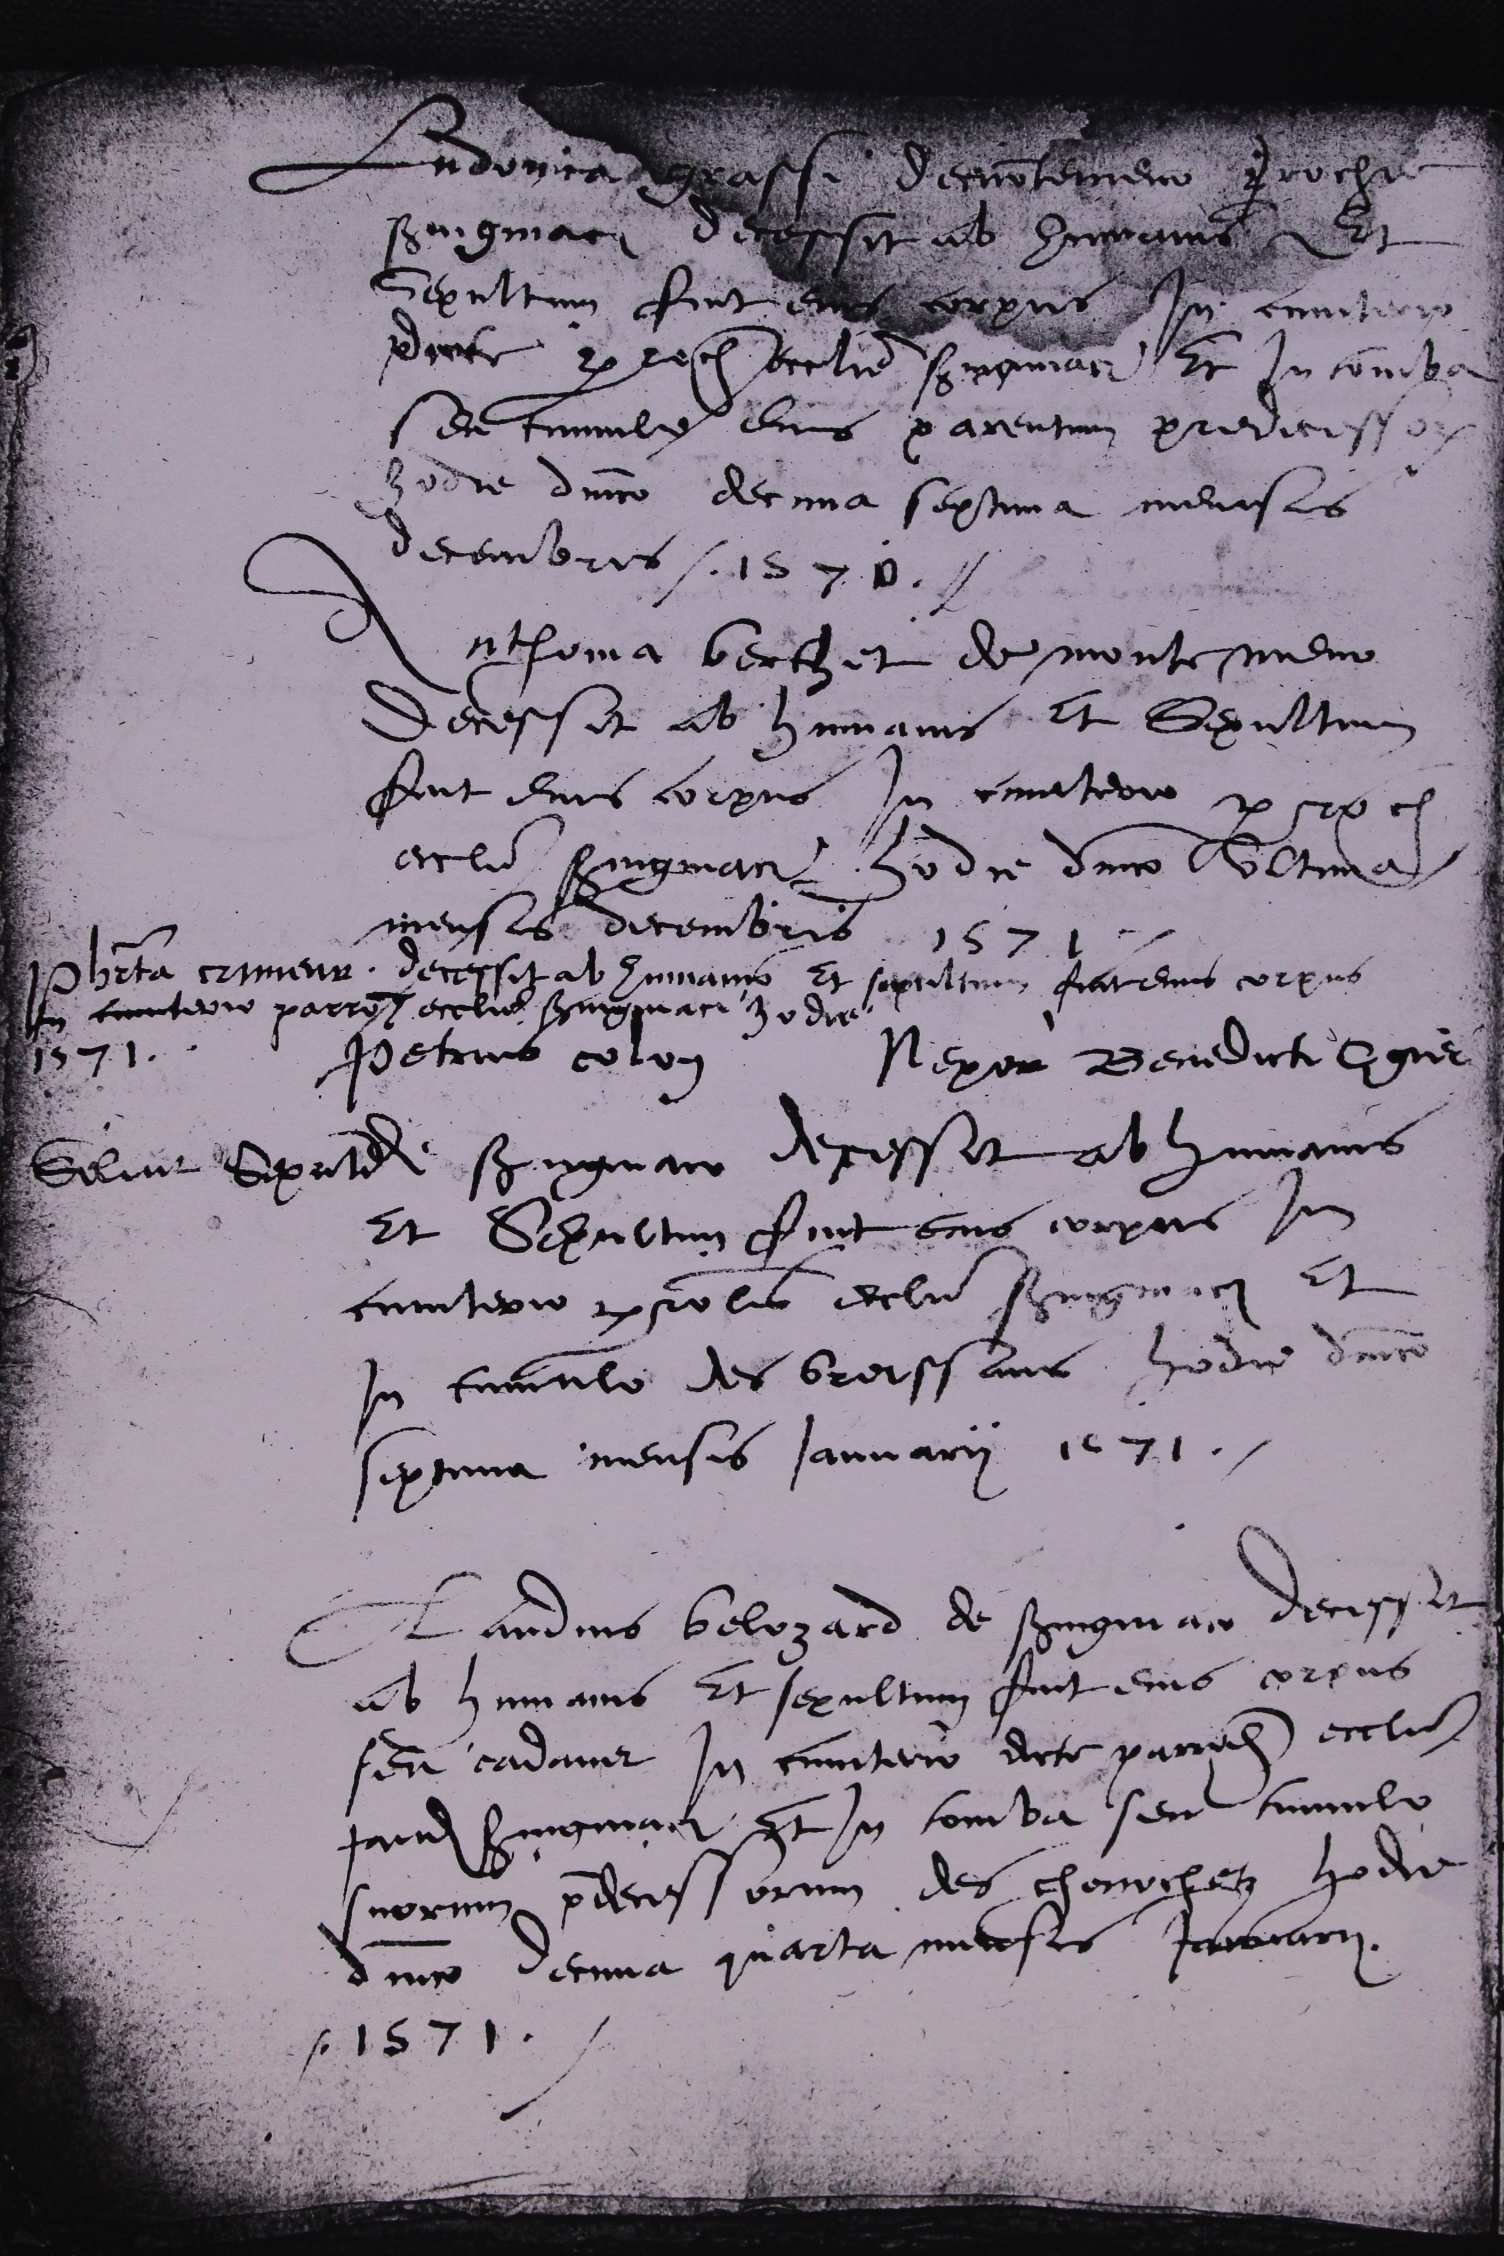 Ludovica grassi de montemeno parrochie
Zingmaci decessit ab humanis Et
Sepultum fuit eius corpus In cimiterio
dicte parroch ecclie Zingmaci Et In tomba
seu tumulo eius parentum predecessor
hodie dnico decima septima mensis
decembris /. 1570. /
Anthonia berthet de montemeno
Decessit ab humanis Et Sepultum
fuit eius corpus In cimiterio parroch
ecclie Zingmaci hodie dnico Ultima
mensis decembris 1571
decessit ab humanis Et sepultum fuit eius corpus
In cimiterio parroch ecclie Zingmaci hodie
1571. Petrus colon Benedicti
Zingmaco decessit ab humanis
Et Sepultum fuit eius corpus In
cimiterio ecclie Zingmaci Et
In tumulo des broissans hodie dnico
septima mensis Januarij 1571. /
Claudius belozard de Zingmaco decessit
ab humanis Et sepultum fuit eius corpus
seu cadaver In cimiterio dicte parroch ecclie
Zingmaci Et In tomba seu tumulo
suorum pdecessorum des chonochetz hodie
dnico decima quarta mensis Januarij.
/. 1571. /